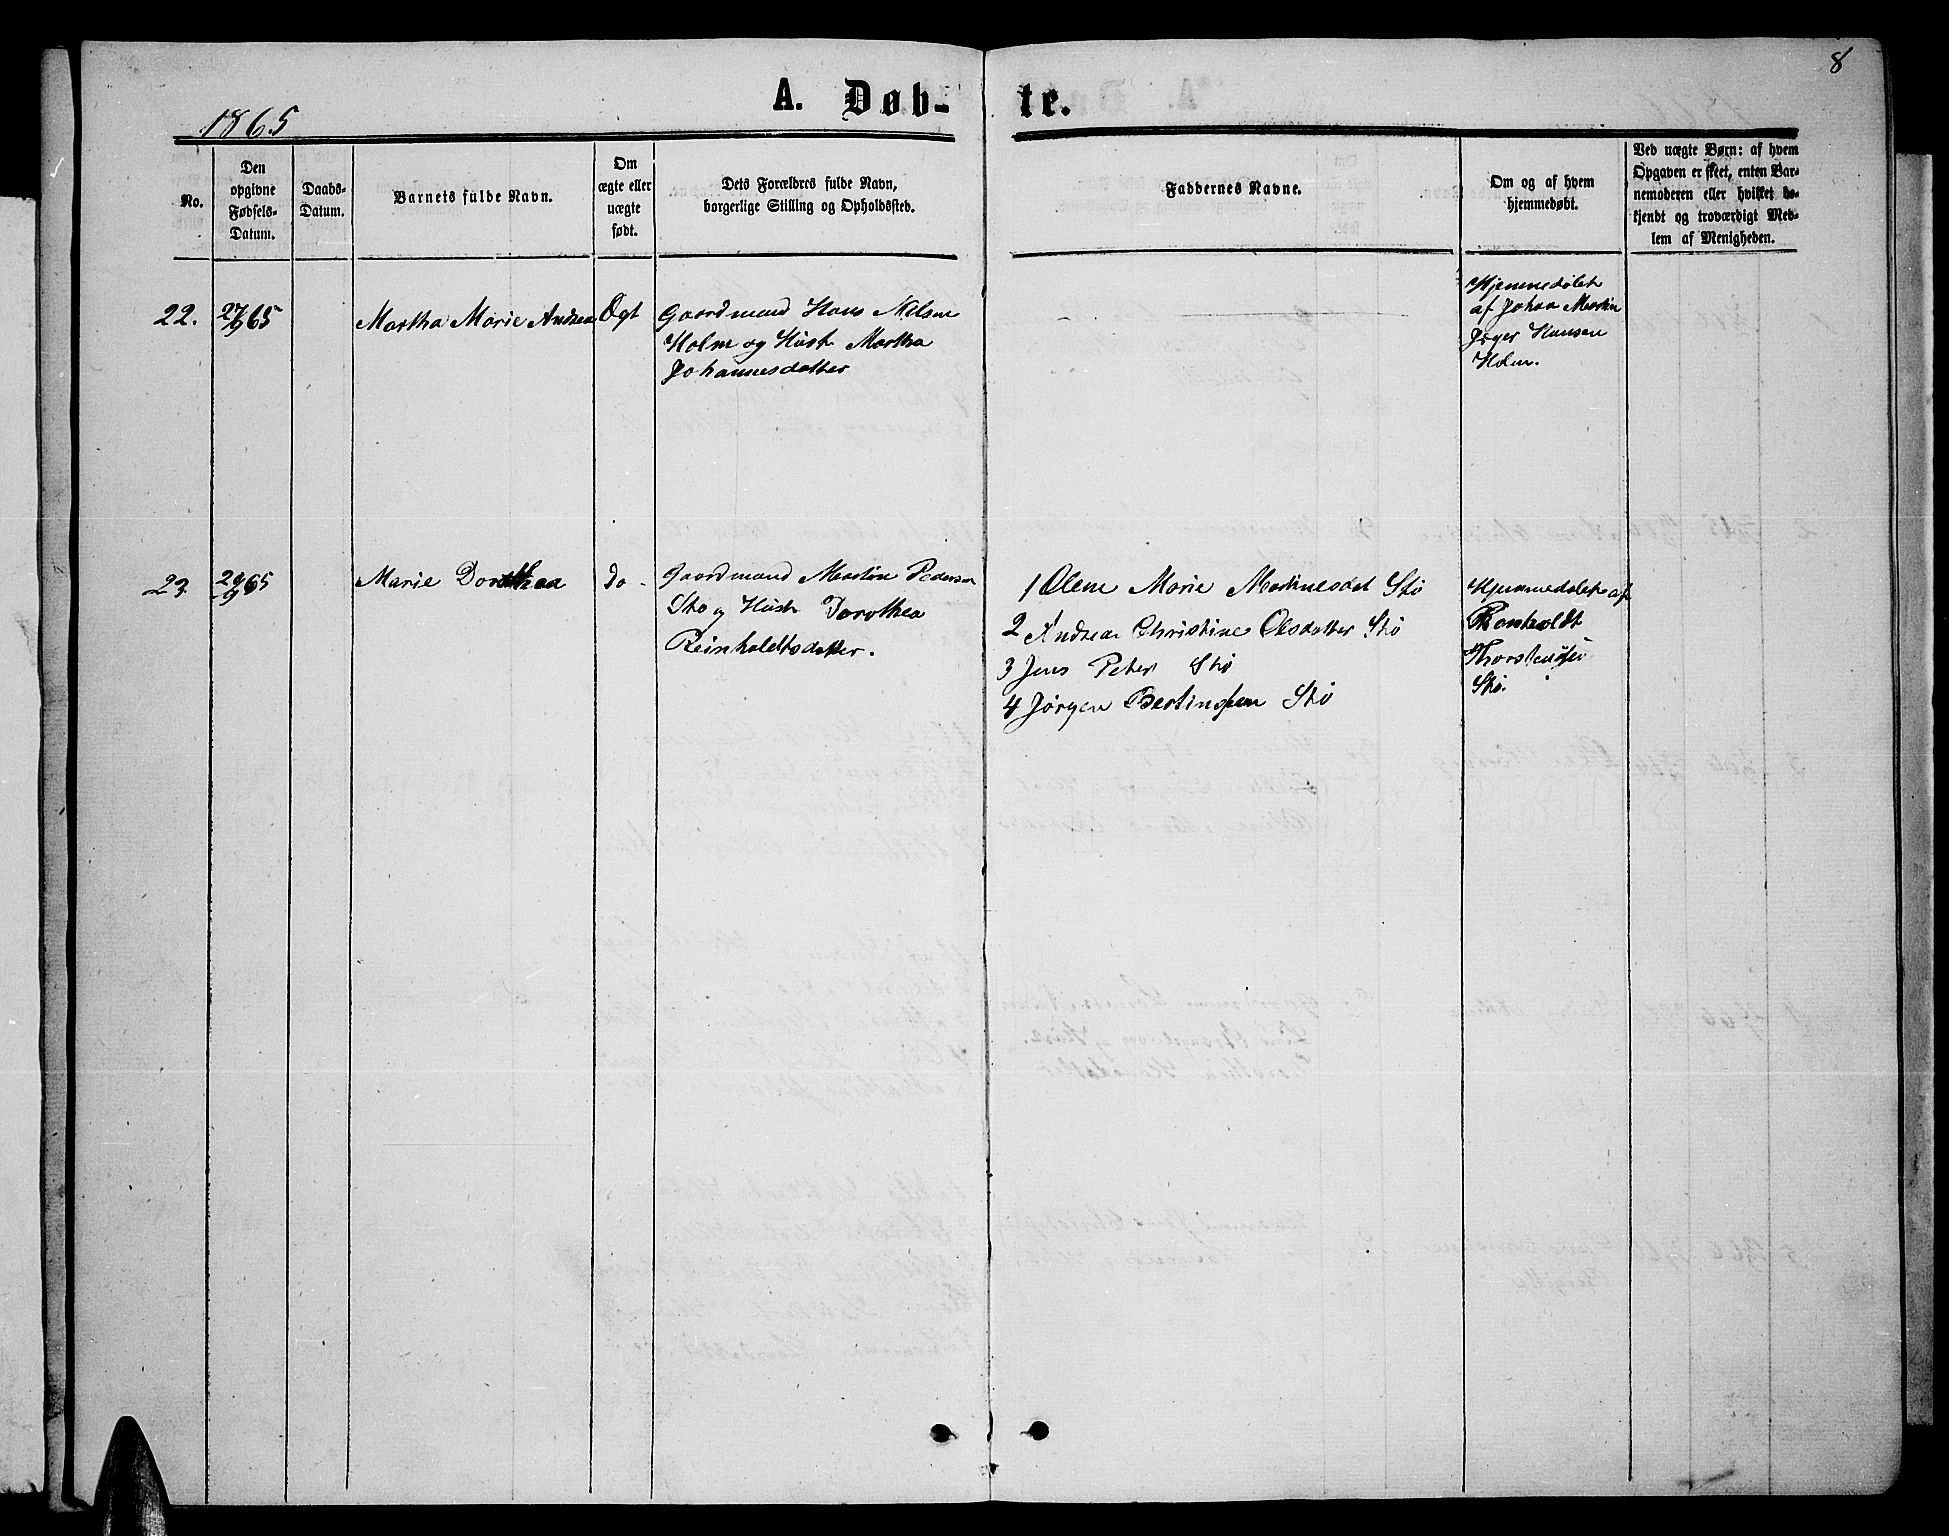 8
1865
A. Døb-
te.
No.
Den
opgivne
Fødsels-
Datum.
Daabs-
Datum.
Barnets fulde Navn.
Om
ægte eller
uægte
født.
Dets Forældres fulde Navn,
borgerlige Stilling og Opholdssted.
Faddernes Navne.
Om og af hvem
hjemmedøbt.
Ved uægte Børn: af hvem
Opgaven er skeet, enten Bar-
nemoderen eller hvilket be-
kjendt og troværdigt Med-
lem af Menigheden.
22.
27/9 65
Martha Marie Andrea
Ægt
Gaardmand Hans Nilsen
Holm og Hust Martha
Johannesdatter
Hjemmedøbt
af Johan Martin
Jøger Hansen
Holm.
23
29/9 65
Marie Dorothea
do
Gaardmand Martin Pedersen
Stø og Hust Dorothea
Reinholdtsdatter.
1 Olene Marie Martinesdat Stø
2 Andrea Christine Olsdatter Stø
3 Jens Peter Stø
4 Jørgen Bertinsen Stø
Hjemmedøbt af
Ronholdt
Thorstensen
Stø.